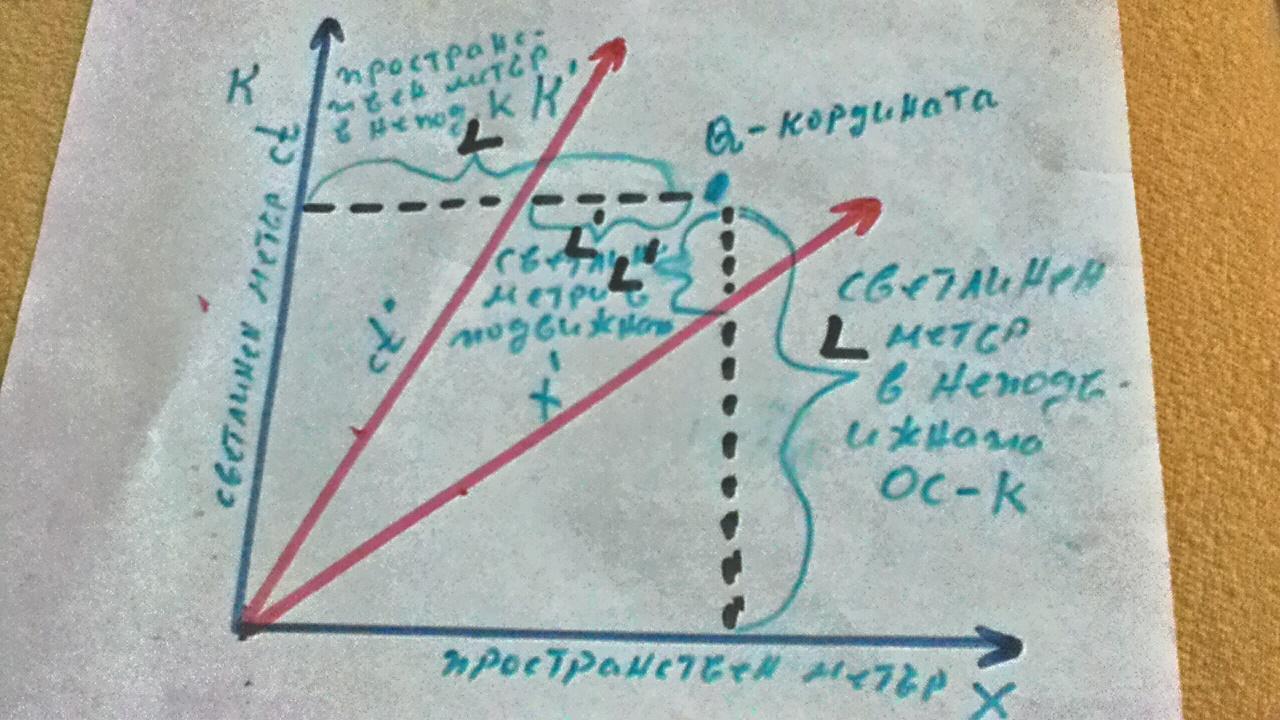 К
простране-
твен метър
в непод K K'
L
Q-кордината
светлинен метър ct
L'
L'
метри в
подвижната
ct'
x'
светлинен
L метър
в неподв-
ижната
ОС-К
пространствен метър X